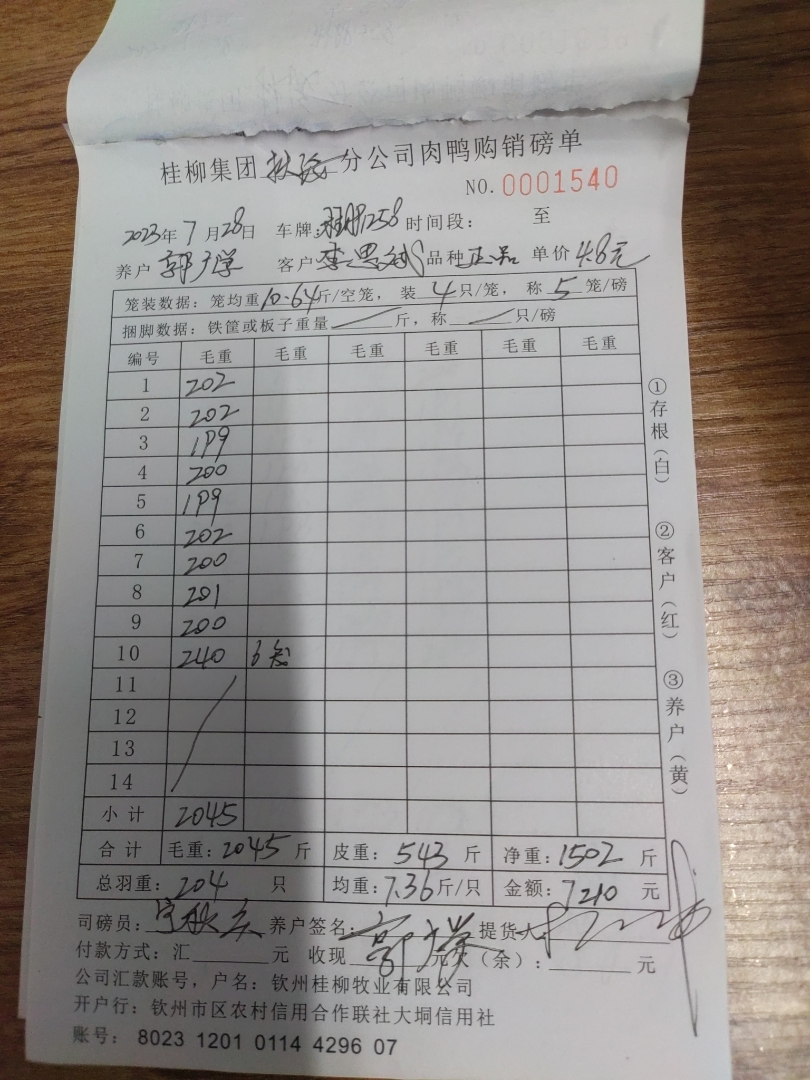 桂柳集团 分公司肉鸭购销磅单
NO. 0001540
2023年 7 月 28日 车牌: 1258 时间段: 至
养户 郭 学 客户 李思 品种 正品 单价 4.8元
笼装数据: 笼均重 10.64 斤/空笼, 装 4 只/笼, 称 5 笼/磅
捆脚数据: 铁筐或板子重量 斤, 称 只/磅
编号 毛重 毛重 毛重 毛重 毛重 毛重
1 202
2 202
3 199
4 200
5 199
6 202
7 200
8 201
9 200
10 240 6笼
11
12
13
14
小计 2045
合计 毛重: 2045 斤 皮重: 543 斤 净重: 1502 斤
总羽重: 204 只 均重: 7.36 斤/只 金额: 7210 元
司磅员: 养户签名: 提货人:
付款方式: 汇 元 收现 元 欠(余): 元
公司汇款账号, 户名: 钦州桂柳牧业有限公司
开户行: 钦州市区农村信用合作联社大垌信用社
账号: 8023 1201 0114 4296 07
①存根(白)
②客户(红)
③养户(黄)